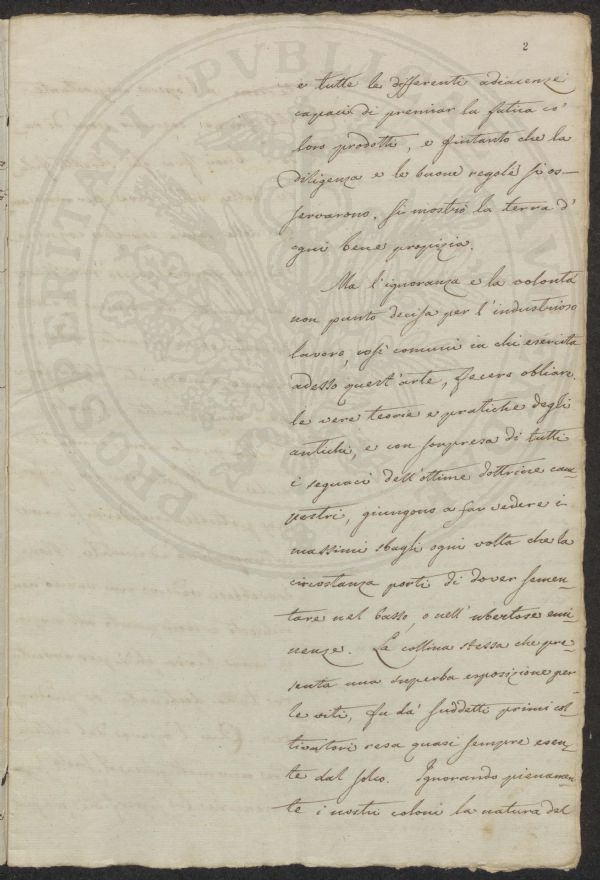 2
e tutte le differenti adiacenze
capaci di premiar la fatica co'
loro prodotti, e fintanto che la
diligenza e le buone regole si os-
servarono, si mostrò la terra d'
ogni bene propizia.
Ma l'ignoranza e la volontà
non punto decisa per l'industrioso
lavoro, così comuni in chi esercita
adesso quest'arte, fecero obliare
le vere teorie e pratiche degli
antichi, e con sorpresa di tutti
i seguaci dell'ottime dottrine cam-
pestri, giungono a far vedere i
massimi sbagli ogni volta che la
circostanza porti di dover semen-
tare nel basso, o nell'ubertose emi-
nenze. La collina stessa che pre-
senta una superba esposizione per
le viti, fu da' suddetti primi col-
tivatori resa quasi sempre esen-
te dal solco. Ignorando pienamen-
te i nostri coloni la natura del
PROSPERITATI PUBLICAE